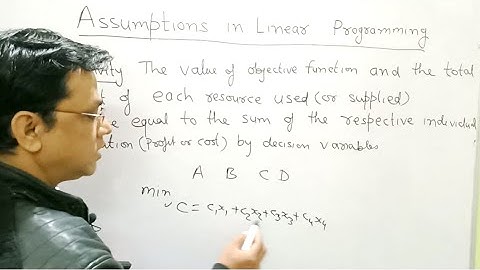 Assumptions in Linear Programming
The value of objective function and the total
of each resource used (or supplied)
equal to the sum of the respective individual
(Profit or cost) by decision variables
A B C D
min
C = c₁x₁ + c₂x₂ + c₃x₃ + c₄x₄